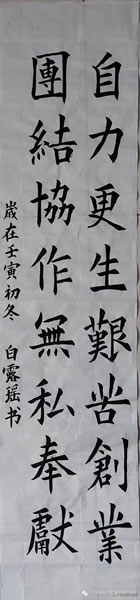 自力更生艱苦創業
團結協作無私奉獻
歲在壬寅初冬 白露瑶书